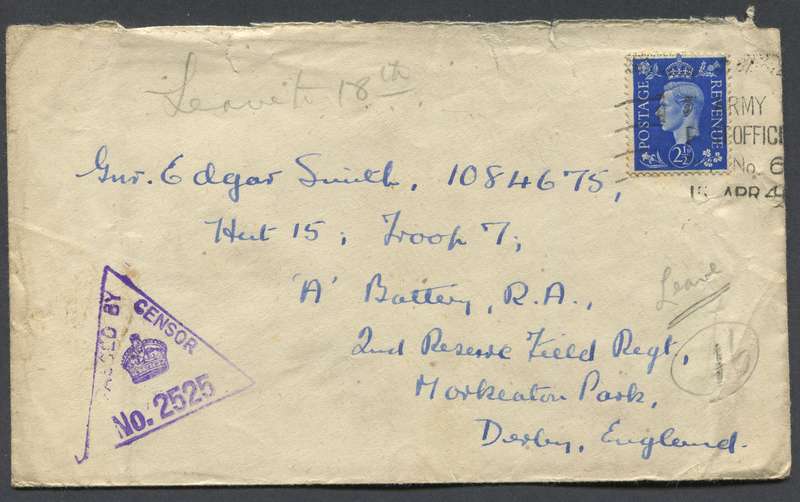 Leave 18th
POSTAGE REVENUE
2½
ARMY
OFFICE
No. 6
APR 4
Gnr. Edgar Smith, 1084675,
Hut 15, Troop 7,
'A' Battery, R.A.,
2nd Reserve Field Regt,
Morkeaton Park,
Derby, England.
Leave
1/6
PASSED BY
CENSOR
No. 2525